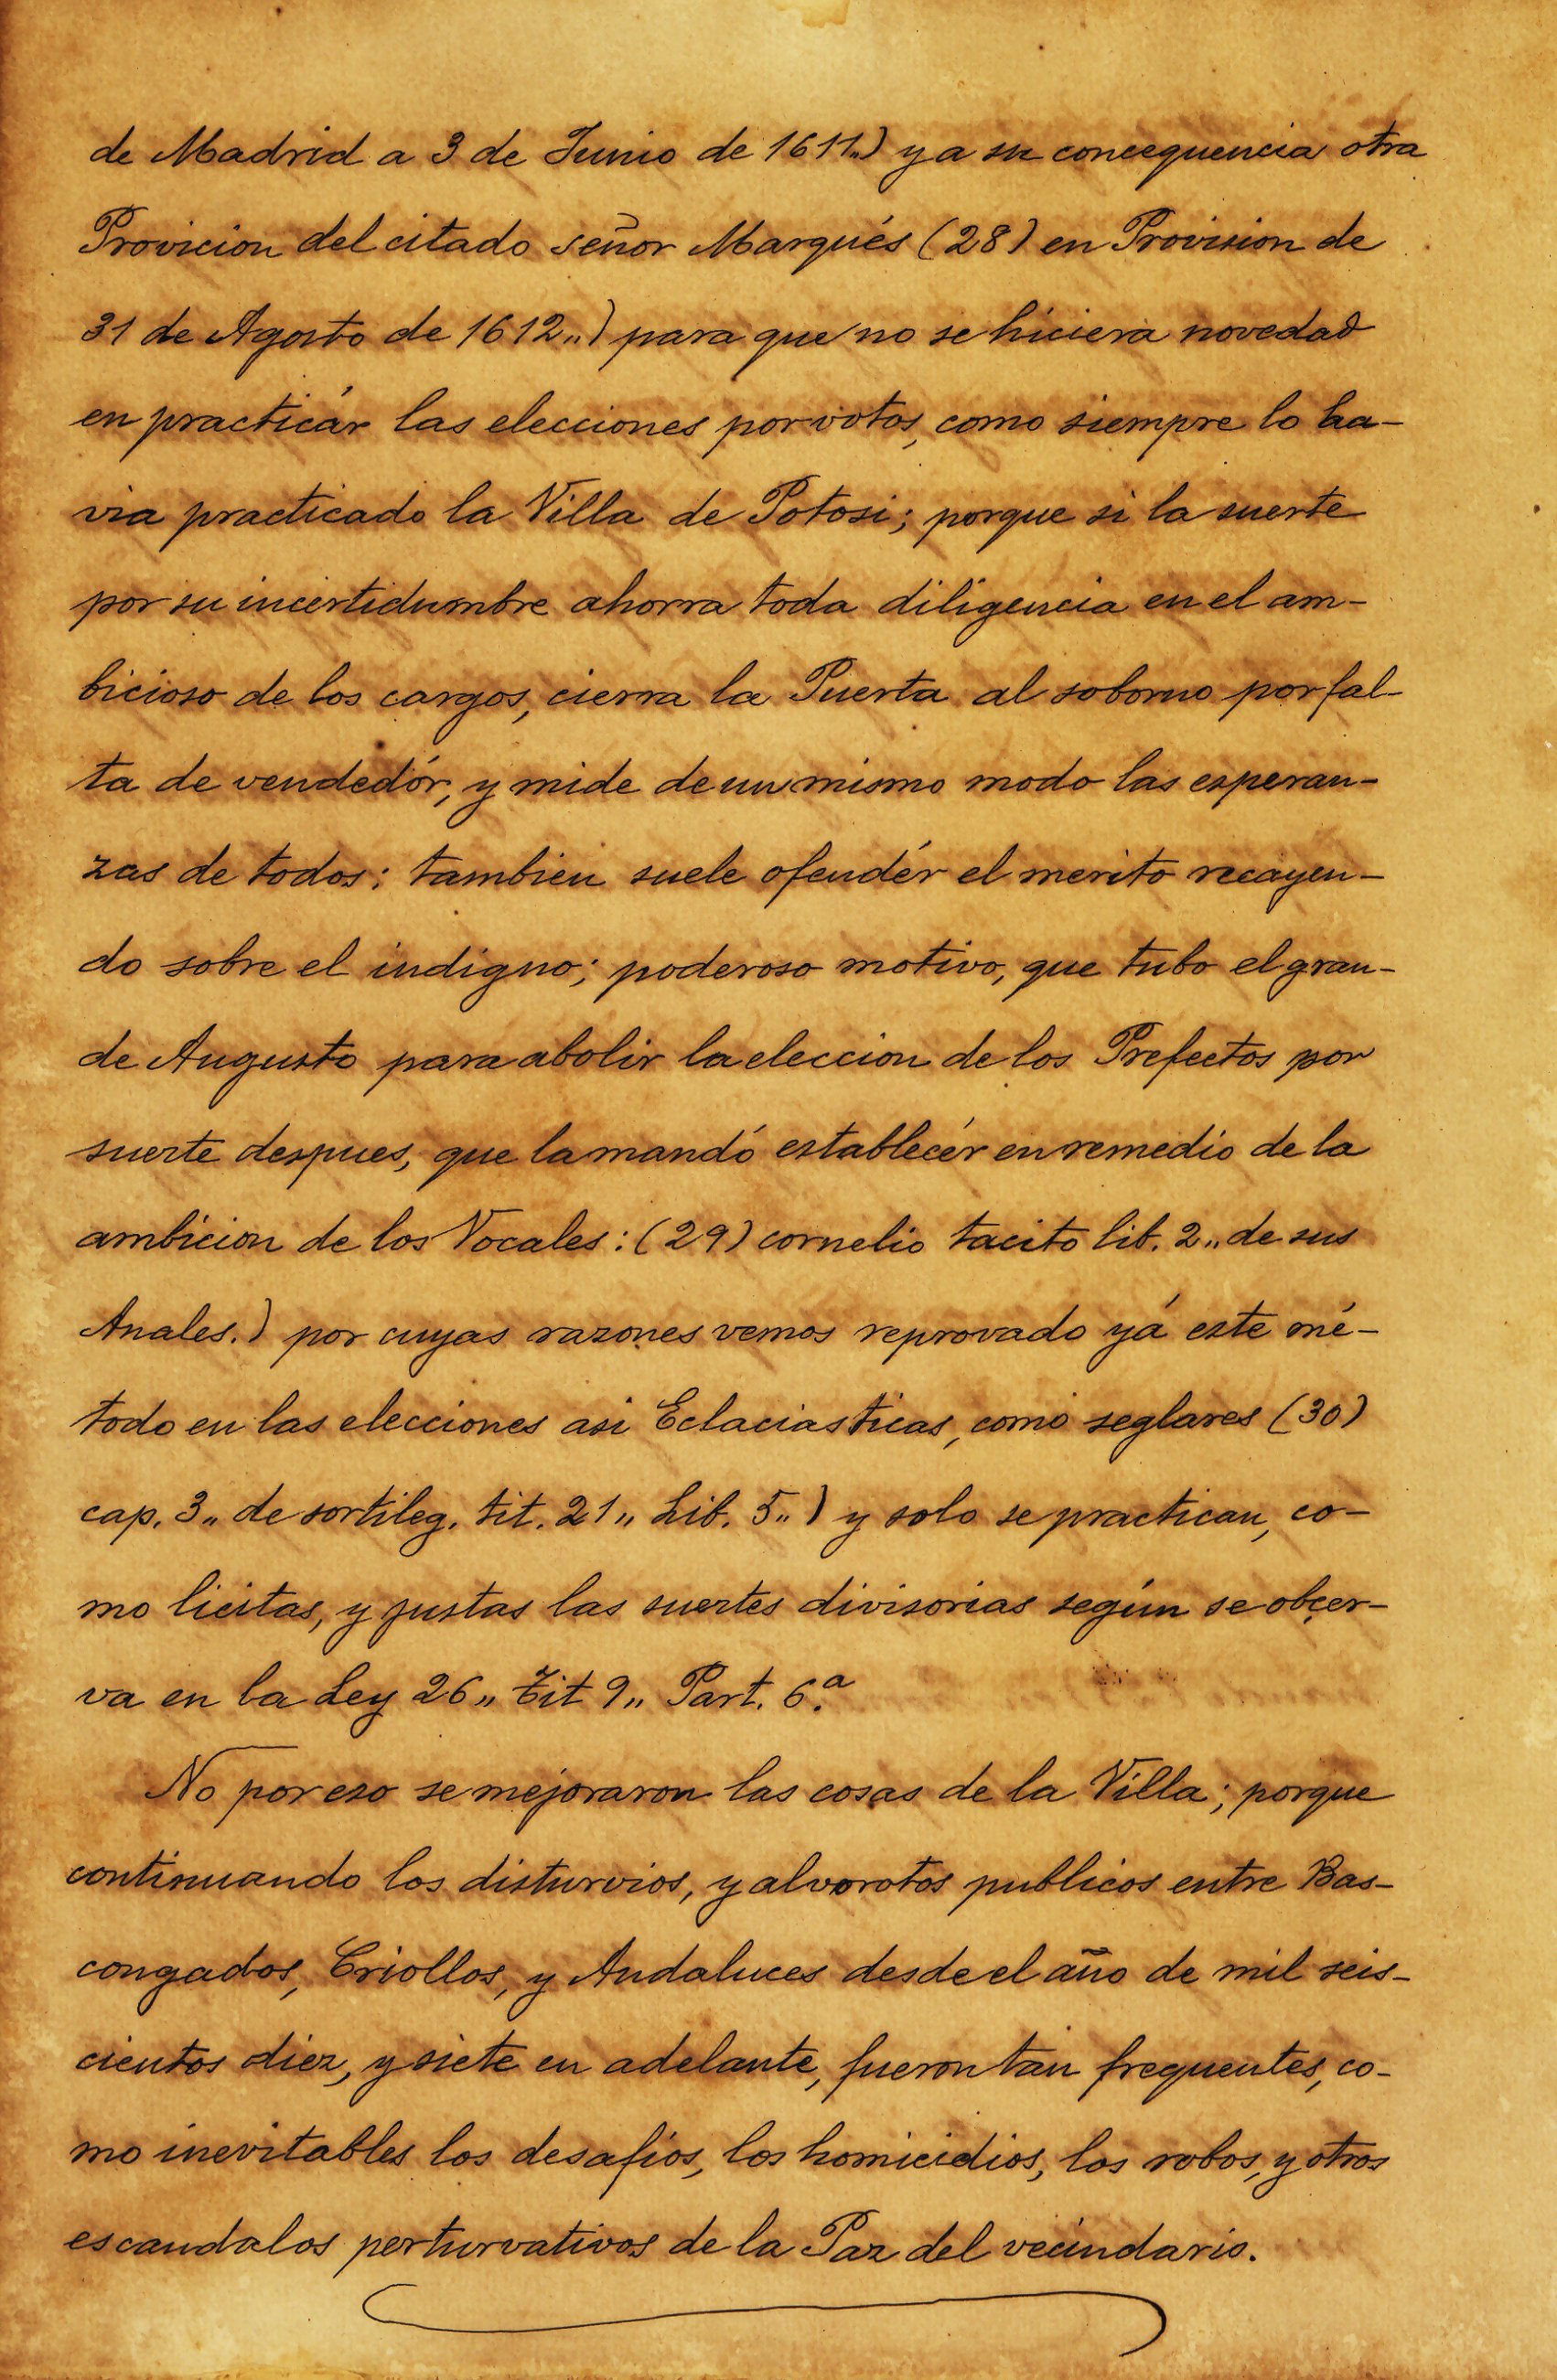 de Madrid a 3 de Junio de 1611.,) y a su concequencia otra
Provicion del citado señor Marqués (28) en Provision de
31 de Agosto de 1612,,) para que no se hiciera novedad
en practicár las elecciones por votos, como siempre lo ha-
via practicado la Villa de Potosi; porque si la suerte
por su incertidumbre ahorra toda diligencia en el am-
bicioso de los cargos, cierra la Puerta al soborno por fal-
ta de vendedór, y mide de un mismo modo las esperan-
zas de todos: tambien suele ofendér el merito recayen-
do sobre el indigno; poderoso motivo, que tubo el gran-
de Augusto para abolir la eleccion de los Prefectos por
suerte despues, que la mandó establecér en remedio de la
ambicion de los Vocales: (29) cornelio tacito lib. 2,, de sus
Anales.) por cuyas razones vemos reprovado yá este mé-
todo en las elecciones asi Eclaciasticas, como seglares (30)
cap. 3,, de sortileg. tit. 21,, Lib. 5,,) y solo se practican, co-
mo licitas, y justas las suertes divisorias según se obçer-
va en la Ley 26,, Tit 9,, Part. 6.ª
No por eso se mejoraron las cosas de la Villa; porque
continuando los disturvios, y alvorotos publicos entre Bas-
congados, Criollos, y Andaluces desde el año de mil seis-
cientos diez, y siete en adelante, fueron tan frequentes, co-
mo inevitables los desafios, los homicidios, los robos, y otros
escandalos perturvativos de la Paz del vecindario.